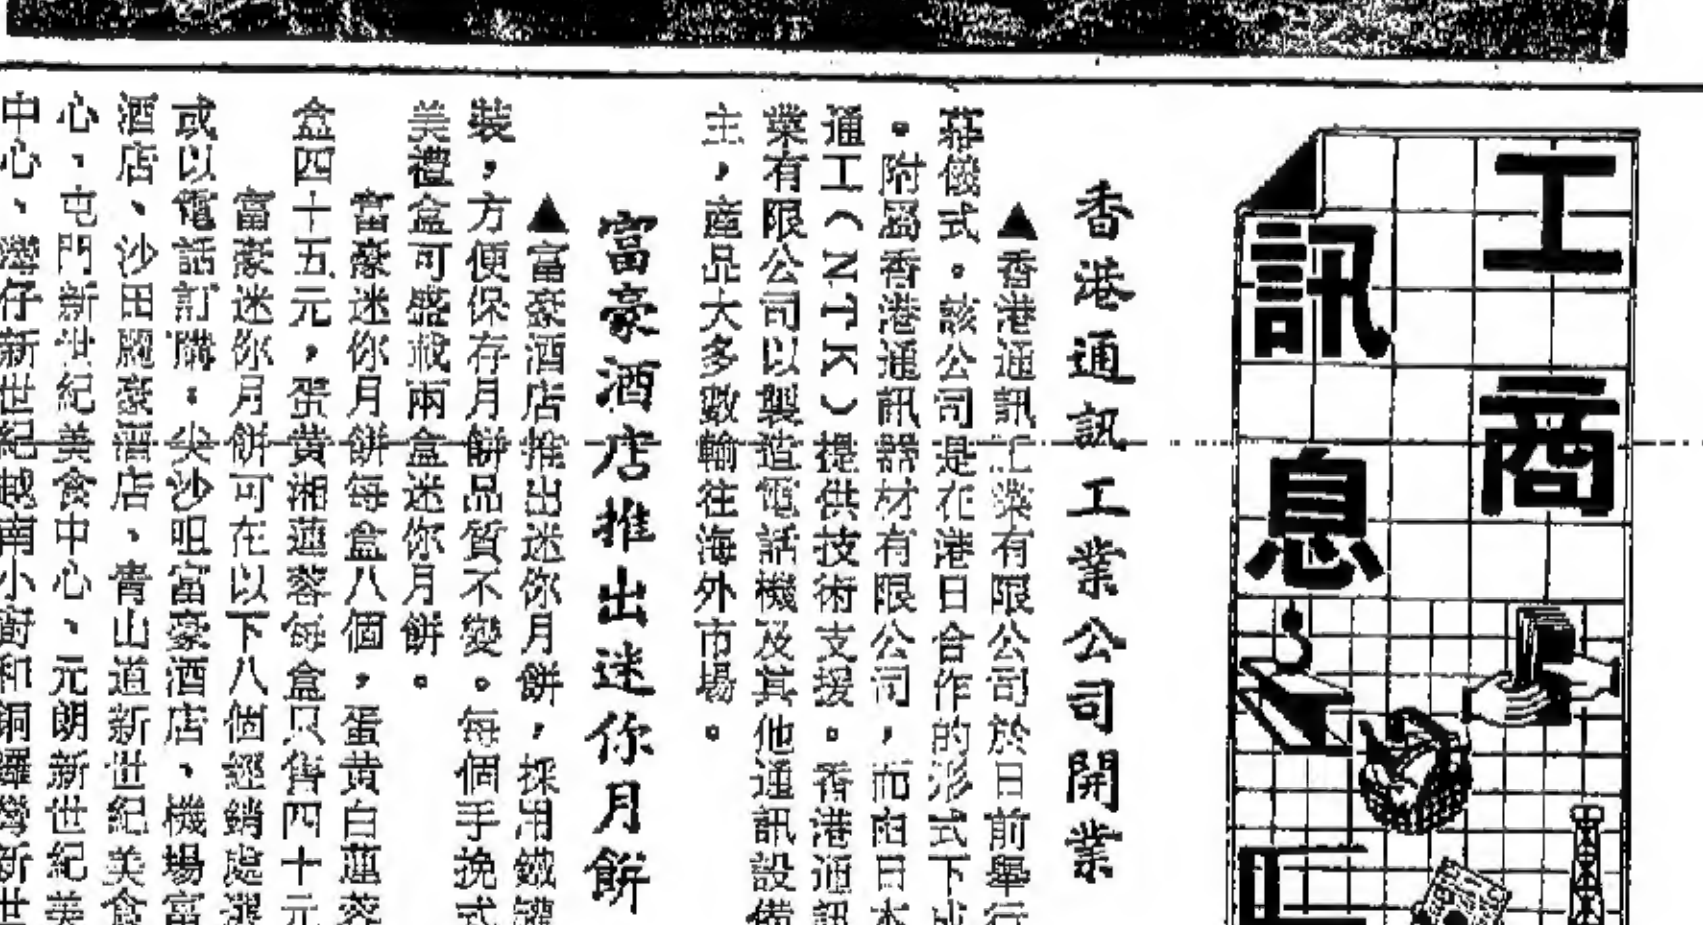 工商
訊息
香港通訊工業公司開業
▲香港通訊工業有限公司於日前舉行
幕儀式。該公司是在港日合作的形式下成
。附屬香港通訊器材有限公司,而由日本
通工(NTK)提供技術支援。香港通訊
業有限公司以製造電話機及其他通訊設備
主,產品大多數輸往海外市場。
富豪酒店推出迷你月餅
▲富豪酒店推出迷你月餅,採用鐵罐
裝,方便保存月餅品質不變。每個手挽式
美禮盒可盛載兩盒迷你月餅。
富豪迷你月餅每盒八個,蛋黄白蓮蓉
盒四十五元,蛋黄湘蓮蓉每盒只售四十元
富豪迷你月餅可在以下八個經銷處選
或以電話訂購:尖沙咀富豪酒店、機場富
酒店、沙田麗豪酒店、青山道新世紀美食
心、屯門新世紀美食中心、元朗新世紀美
中心、灣仔新世紀越南小廚和銅鑼灣新世